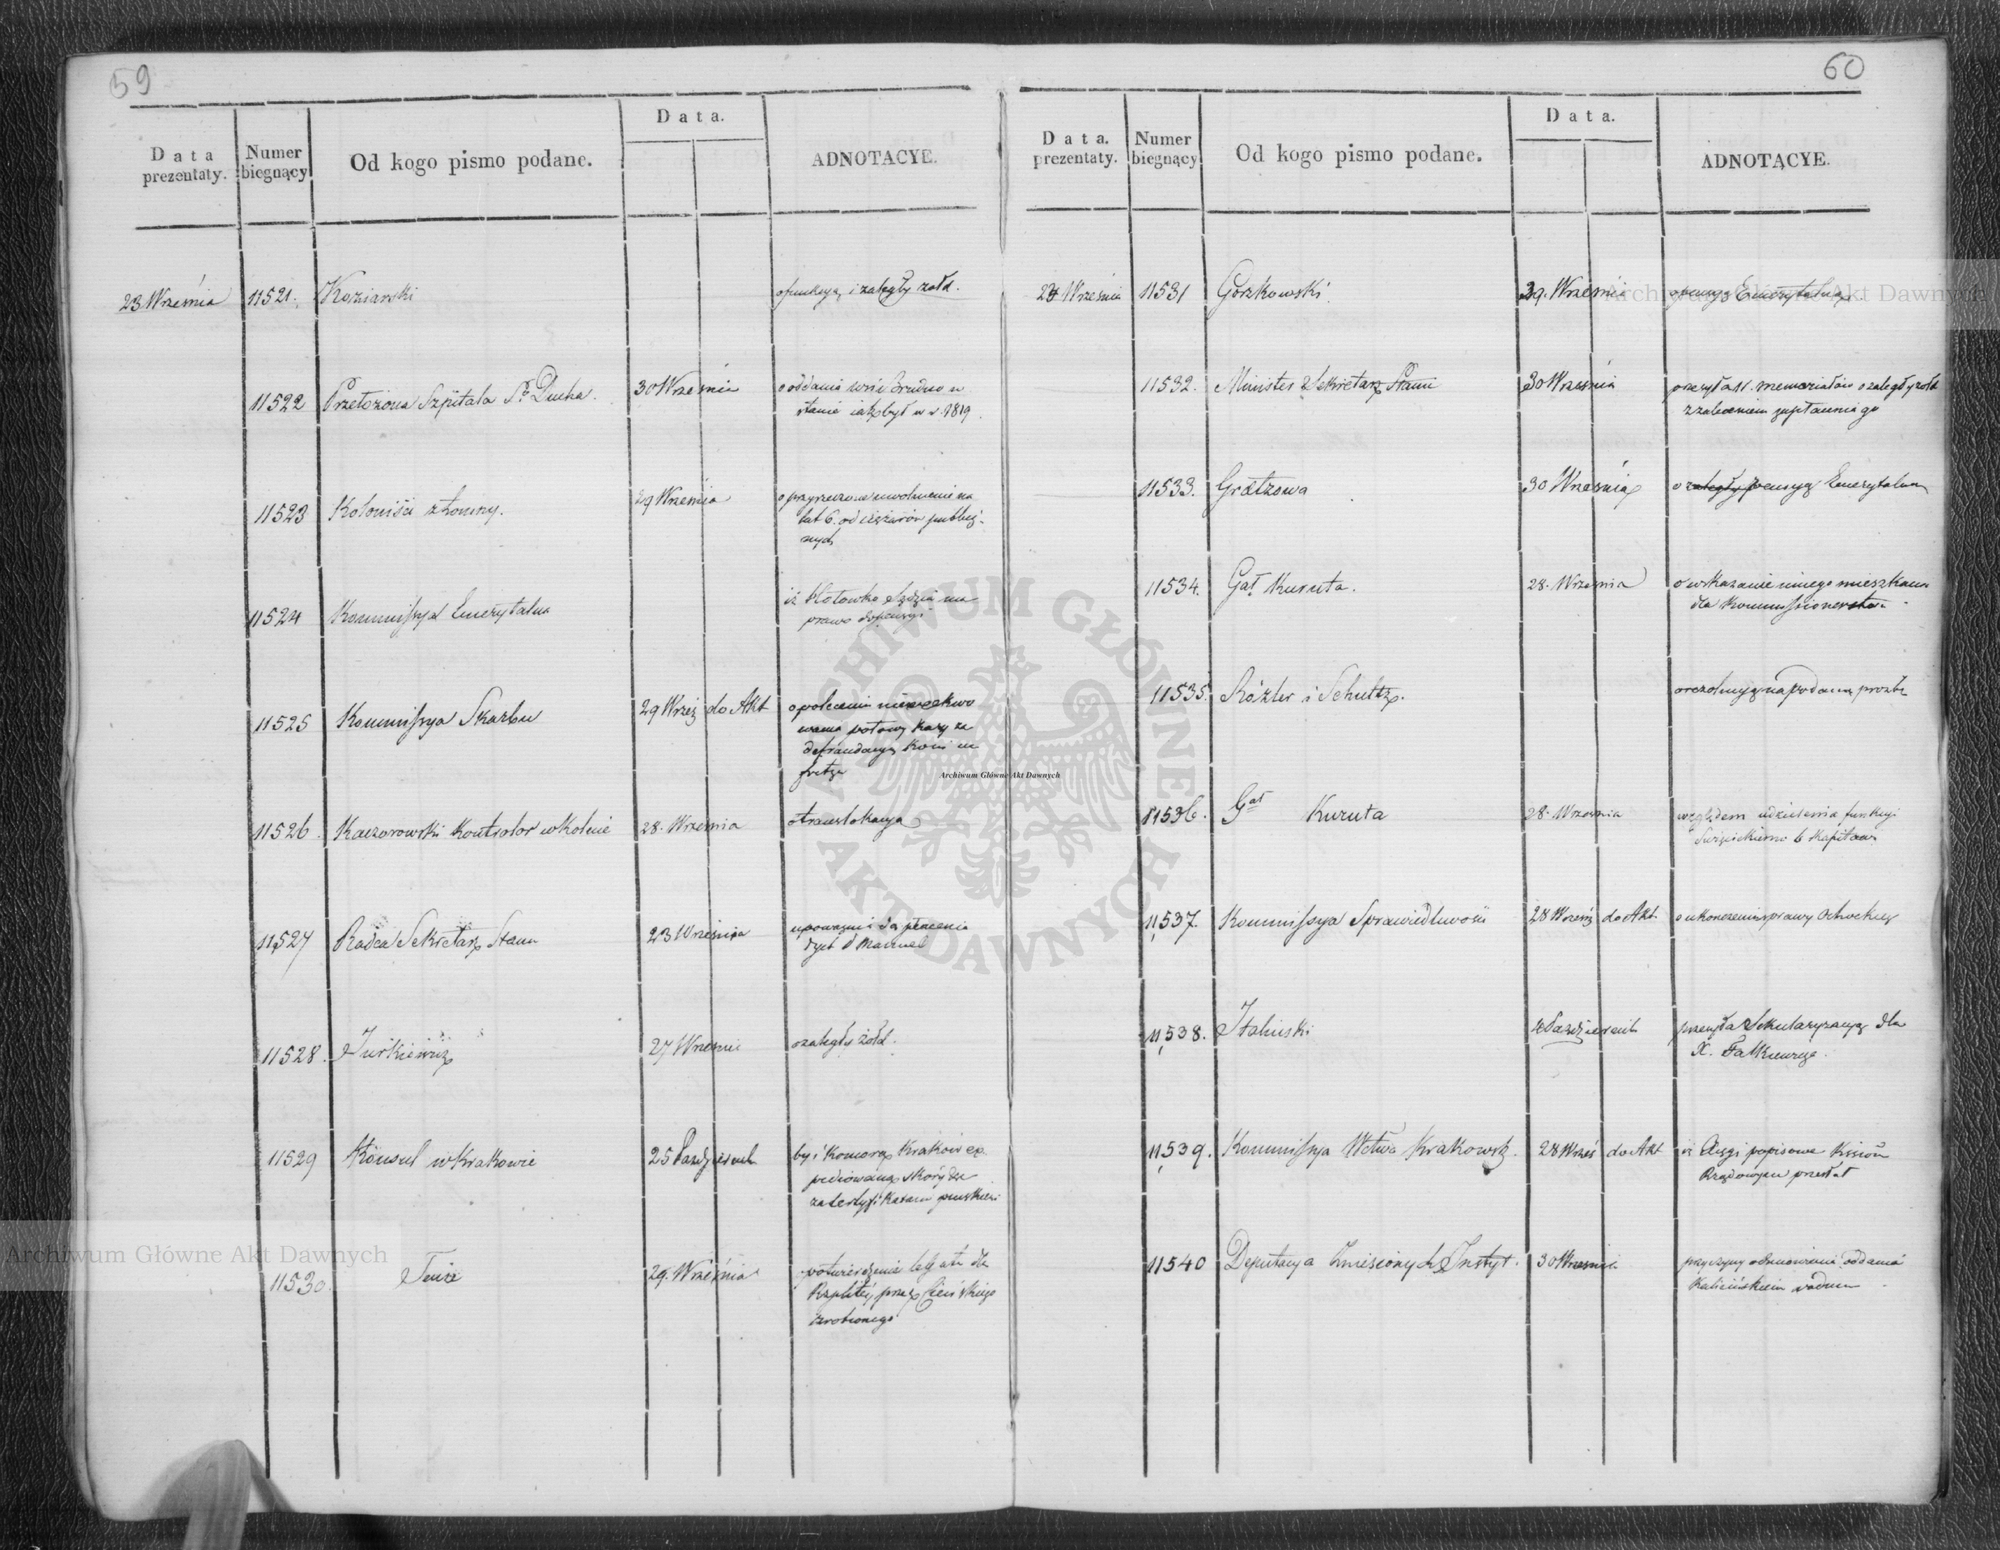 59
Data prezentaty.
Numer biegnący
Od kogo pismo podane.
Data.
ADNOTACYE.
23 Września 11521. Koziarski o funkcyą i zaległy żołd.
11522 Przełożona Szpitala Sgo Ducha. 30 Września o oddania wsi Brudno w
stanie iak był w r. 1819
11523 Koloniści z Łomny. 29 Września o przyrzeczone uwolnienie na
lat 6. od ciężarów publicz-
nych
11524 Kommissya Emerytalna iż Kotowko Sędzia ma
prawo do pensyi
11525 Kommissya Skarbu 29 Wrześ do Akt o polecenie niewekwo
wania połowy kary za
defraudacyą koni
11526. Kaczorowski Kontrolor w Kolnie 28. Września o translokacyą
11527 Radca Sekretarz Stanu 23 Września upoważni do płacenia
dyet d Manuel
11528. Jurkiewicz 27 Wrześnie o zaległy żołd.
11529 Konsul w Krakowie 25 Październik by i Komora Kraków ex
pediowana skóry
11530. Tenże 29. Września potwierdzenie legatu dla
Rzplitéy przez
zrobionego
60
Data. prezentaty.
Numer biegnący
Od kogo pismo podane.
Data.
ADNOTACYE.
24 Wrześnie 11531 Gorzkowski 29. Września o pensyą Emerytalną.
11532. Minister Sekretarz Stanu 30 Września przesyła 11. memoriałów o zaległy żołd
z zaleceniem zapłacenia go
11533. Grötzowa 30 Września o zaległy pensyą Emerytalną
11534. Gał Kuruta. 28. Września o wskazanie innego mieszkania
dla Kommissionera.
11535. Rözler i Schultz. o rezolucyą na podaną prozbę
11536. Gał Kuruta 28. Września względem udzielenia funkcyi
b Kapitan
11537. Kommissya Sprawiedliwości 28 Wrześ do Akt o ukończenie sprawy
11538. Italinski Październik przesyła Sekularyzacyą dla
X. Falkiewicza.
11539. Kommissya Wdtwa Krakowsk. 28 Wrześ do Akt iż Xięgi popisowe Kssion
Rządowey przesłał
11540 Deputacya Zniesionych Instyt. 30 Wrześnie przyczyny odmowienia oddania
Kalicińskiem
Archiwum Główne Akt Dawnych
Archiwum Główne Akt Dawnych
Archiwum Główne Akt Dawnych
ARCHIWUM GŁÓWNE AKT DAWNYCH